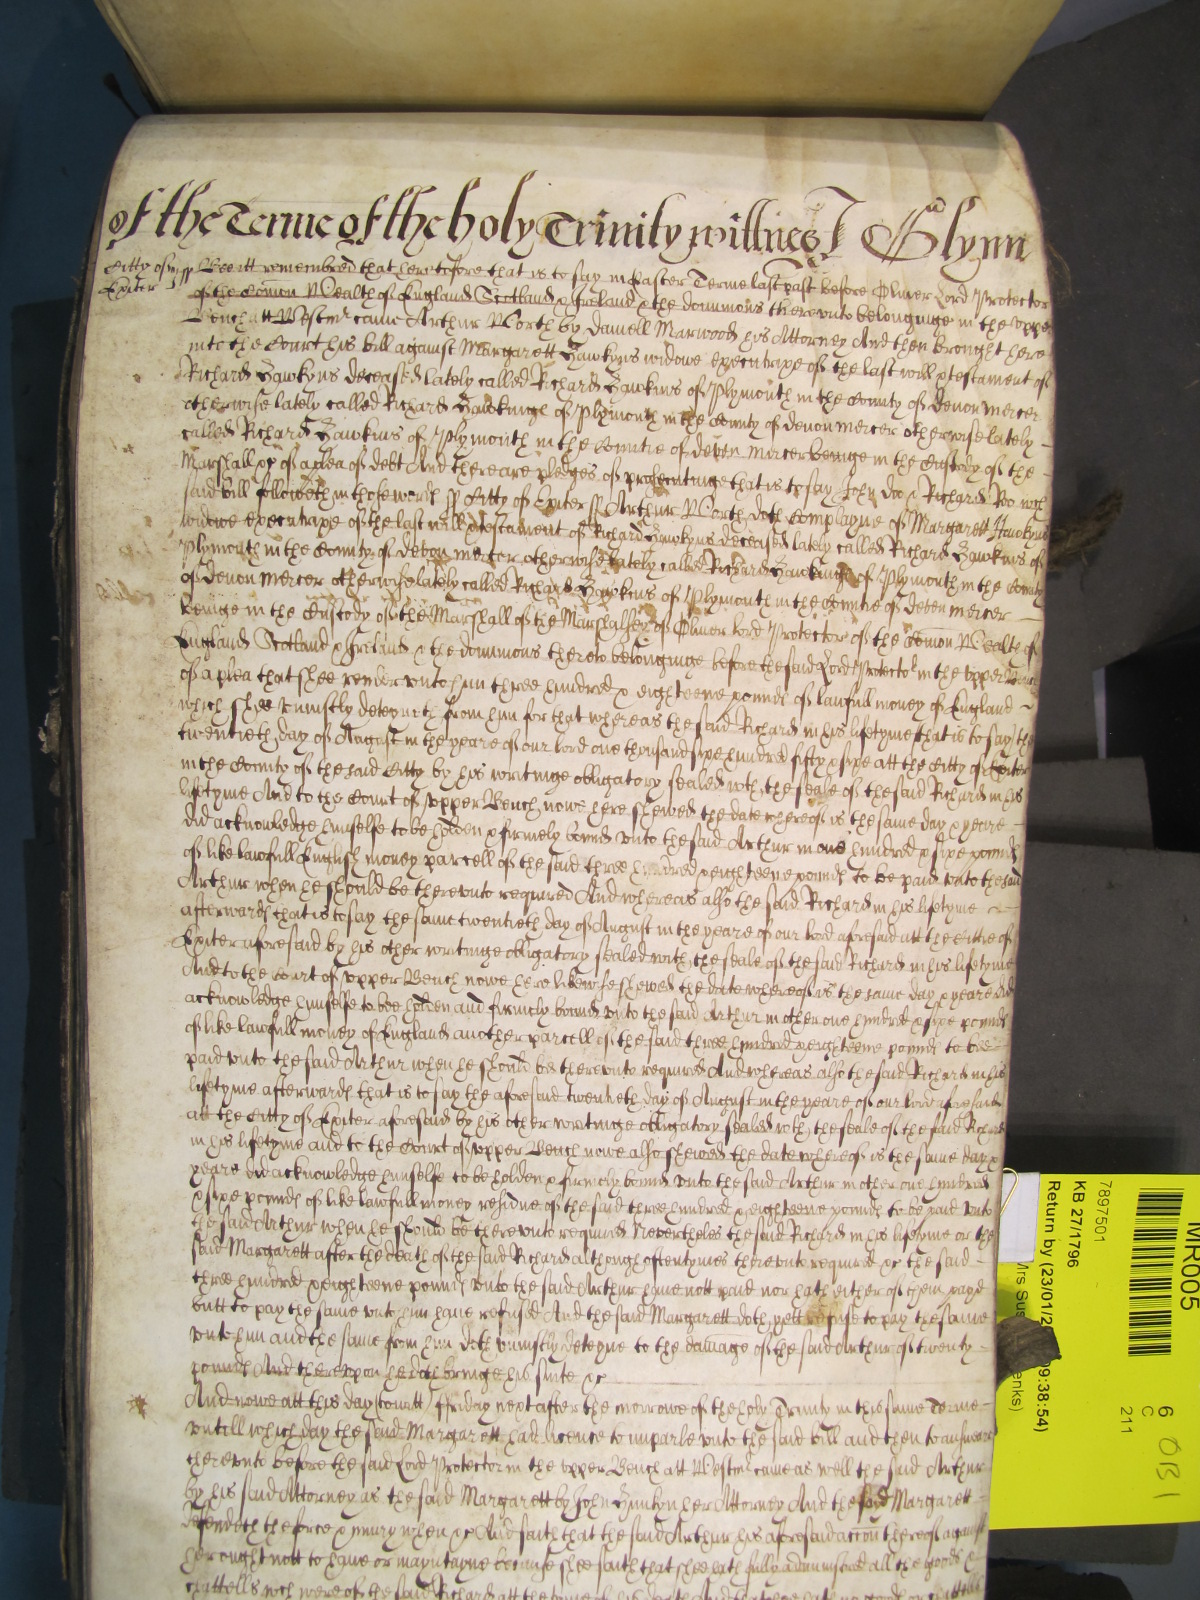 of the Terme of the holy Trinity wittnes J Glynn
Citty of
Exiter ss Bee itt remembred that heretofore that is to say in Easter Terme last past before Oliver Lord Protector
of the Comon Wealth of England Scotland & Ireland & the dominions thereunto belonginge in the upper
Bench att Westmr came Arthur Worth by Daniell Marwood his Attorney And then brought here
into the Court his bill against Margarett Hawkyns widowe executrixe of the last will & testament of
Richard Hawkyns deceased lately called Richard Hawkins of Plymouth in the County of Devon mercer
otherwise lately called Richard Hawkinge of Plymouth in the County of devon mercer otherwise lately
called Richard Hawkins of Plymouth in the Comtie of deven mercer beinge in the Custody of the
Marshall &c of a plea of debt And there are pledges of prosecutinge that is to say John Doo & Richard Roo wch
said bill followeth in these words ss Citty of Exiter ss Arthur Worth doth Complayne of Margarett Hawkyns
widowe executrixe of the last will & testament of Richard Hawkyns deceased lately called Richard Hawkins of
Plymouth in the County of Devon mercer otherwise lately called Richard Hawkinge of Plymouth in the County
of Devon mercer otherwise lately called Richard Hawkins of Plymouth in the Comtie of deven mercer
beinge in the Custody of the Marshall of the Marshalsey of Oliver lord Protector of the Comon Wealth of
England Scotland & Ireland & the dominions thereto belonginge before the said Lord Protector in the upper Bench
of a plea that shee render unto him three hundred & eighteene pounds of lawfull money of England
which shee uniustly deteyneth from him for that whereas the said Richard in his lifetyme that is to say the
twentieth day of August in the yeare of our lord one thousand sixe hundred fifty & sixe att the Citty of Exiter
in the County of the said Citty by his writinge obligatory sealed wth the seale of the said Richard in his
lifetyme And to the Court of upper Bench nowe here shewed the date whereof is the same day & yeare
did acknowledge himselfe to be holden & firmely bound unto the said Arthur in one hundred & sixe pounds
of like lawfull English money parcell of the said three hundred & eighteene pounds To be paid unto the said
Arthur when he should be thereunto required And whereas also the said Richard in his lifetyme
afterwards that is to say the same twentieth day of August in the yeare of our lord aforesaid att the Cittie of
Exiter aforesaid by his other writinge obligatory sealed with the seale of the said Richard in his lifetyme
And to the Court of upper Bench nowe here likewise shewed the date whereof is the same day & yeare did
acknowledge himselfe to bee holden and firmely bound unto the said Arthur in other one hundred & sixe pounds
of like lawfull money of England another parcell of the said three hundred & eighteene pounds to bee
paid unto the said Arthur when he should be thereunto required And whereas also the said Richard in his
lifetyme afterwards that is to say the aforesaid twentieth day of August in the yeare of our lord aforesaid
att the Citty of Exiter aforesaid by his other writinge obligatory sealed wth the seale of the said Richard
in his lifetyme and to the Court of upper Bench nowe also shewed the date whereof is the same day &
yeare did acknowledge himselfe to be holden & firmely bound unto the said Arthur in other one hundred
& sixe pounds of like lawfull money residue of the said three hundred & eighteene pounds to be paid unto
the said Arthur when he should be thereunto required Nevertheles the said Richard in his lifetyme or the
said Margarett after the death of the said Richard although oftentymes thereunto required &c the said
three hundred & eighteene pounds unto the said Arthur have nott paid nor hath either of them payd
butt to pay the same unto him have refused And the said Margarett doth yett refuse to pay the same
unto him and the same from him doth uniustly deteyne to the damage of the said Arthur of twenty
pounds And thereupon he doth bringe his suite &c
And nowe att this day (to witt) ffriday next after the morrowe of the holy Trinity in this same Terme
untill which day the said Margarett had licence to imparle unto the said bill and then to answeare
thereunto before the said Lord Protector in the upper Bench att Westmr came as well the said Arthur
by his said Attorney as the said Margarett by John his her Attorney And the said Margarett
defendeth the force & iniury when &c And saith that the said Arthur his aforesaid accion thereof against
her ought nott to have or mayntayne because shee saith that shee hath fully administred all the goods &
chattells wch were of the said Richard att the tyme of his death And that shee hath no goods or chattells
MR005
6
C
211
7897501
KB 27/1796
Return by (23/01/2 09:38:54)
Mrs Sus enks)